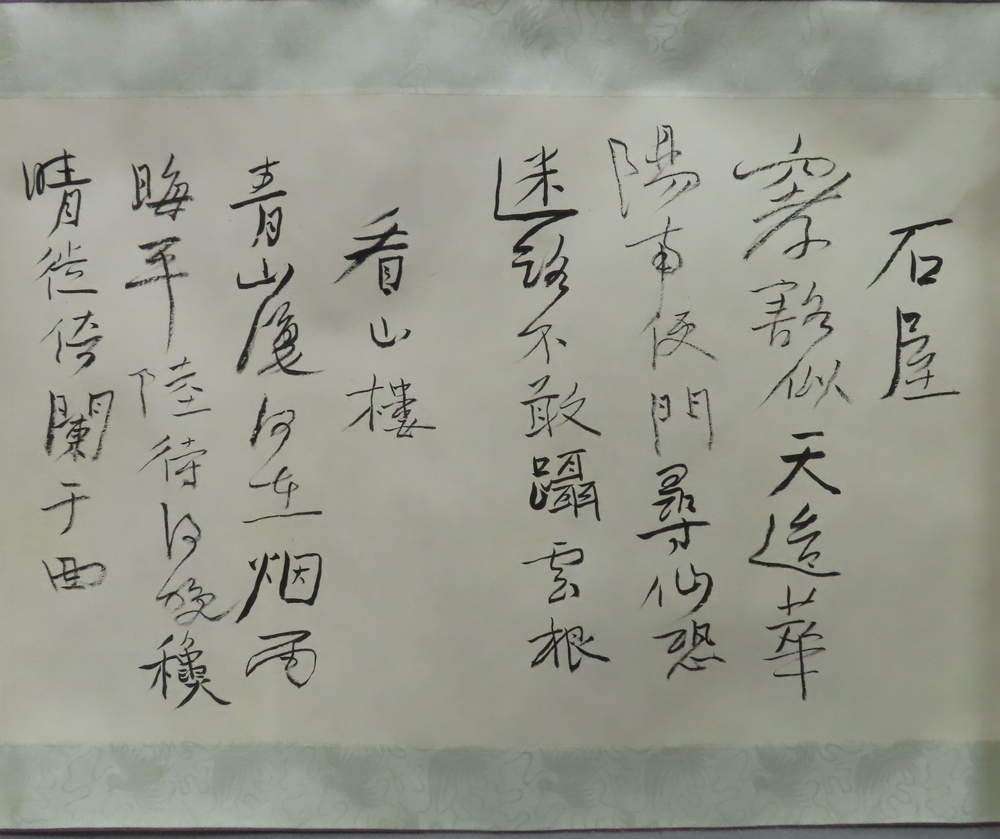 石屋
窙豁似天造華
陽南便門尋仙恐
迷路不敢躡雲根
看山樓
青山何在烟雨
晦平陸待得晚
晴徙倚闌干曲